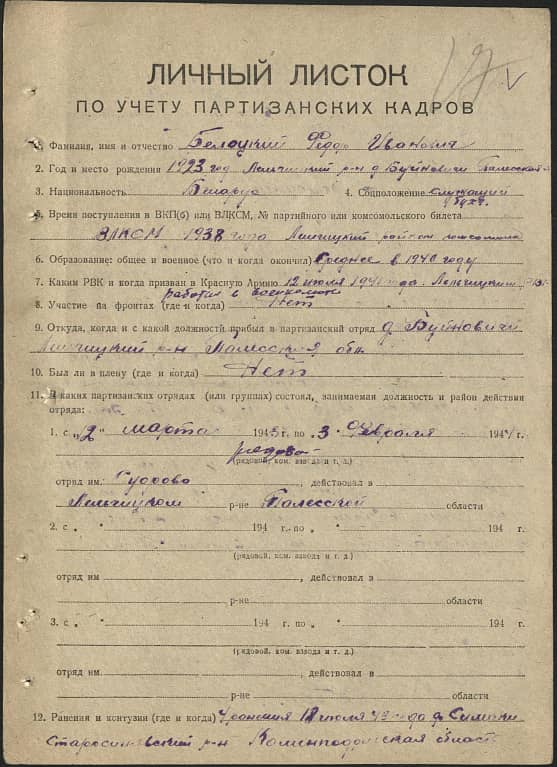 17 V
ЛИЧНЫЙ ЛИСТОК
ПО УЧЕТУ ПАРТИЗАНСКИХ КАДРОВ
1. Фамилия, имя и отчество Белоцкий Федор Иванович
2. Год и место рождения 1923 год Лельчицкий р-н д Буйновичи Полесской
3. Национальность Беларус 4. Соцположение служащий
5. Время поступления в ВКП(б) или ВЛКСМ, № партийного или комсомольского билета
ВЛКСМ 1938 года Лельчицкий райком комсомола
6. Образование: общее и военное (что и когда окончил) Среднее в 1940 году
7. Каким РВК и когда призван в Красную Армию 12 июля 1941 года Лельчицким
работал в военкомате
8. Участие на фронтах (где и когда) Нет
9. Откуда, когда и с какой должности прибыл в партизанский отряд д Буйновичи
Лельчицкий р-н Полесская обл
10. Был ли в плену (где и когда) Нет
11. В каких партизанских отрядах (или группах) состоял, занимаемая должность и район действия
отряда:
1. с „2" марта 1943 г. по „3" Февраля 1944 г.
рядовой
(рядовой, ком. взвода и т. д.)
отряд им. Суворова, действовал в
Лельчицком р-не Полесской области
2. с „ " 194 г. по „ " 194 г.
(рядовой, ком. взвода и т. д.)
отряд им , действовал в
р-не области
3. с „ " 194 г. по „ " 194 г.
(рядовой, ком. взвода и т. д.)
отряд им. , действовал в
р-не области
12. Ранения и контузии (где и когда) 12 июля 43 года д
р-н область